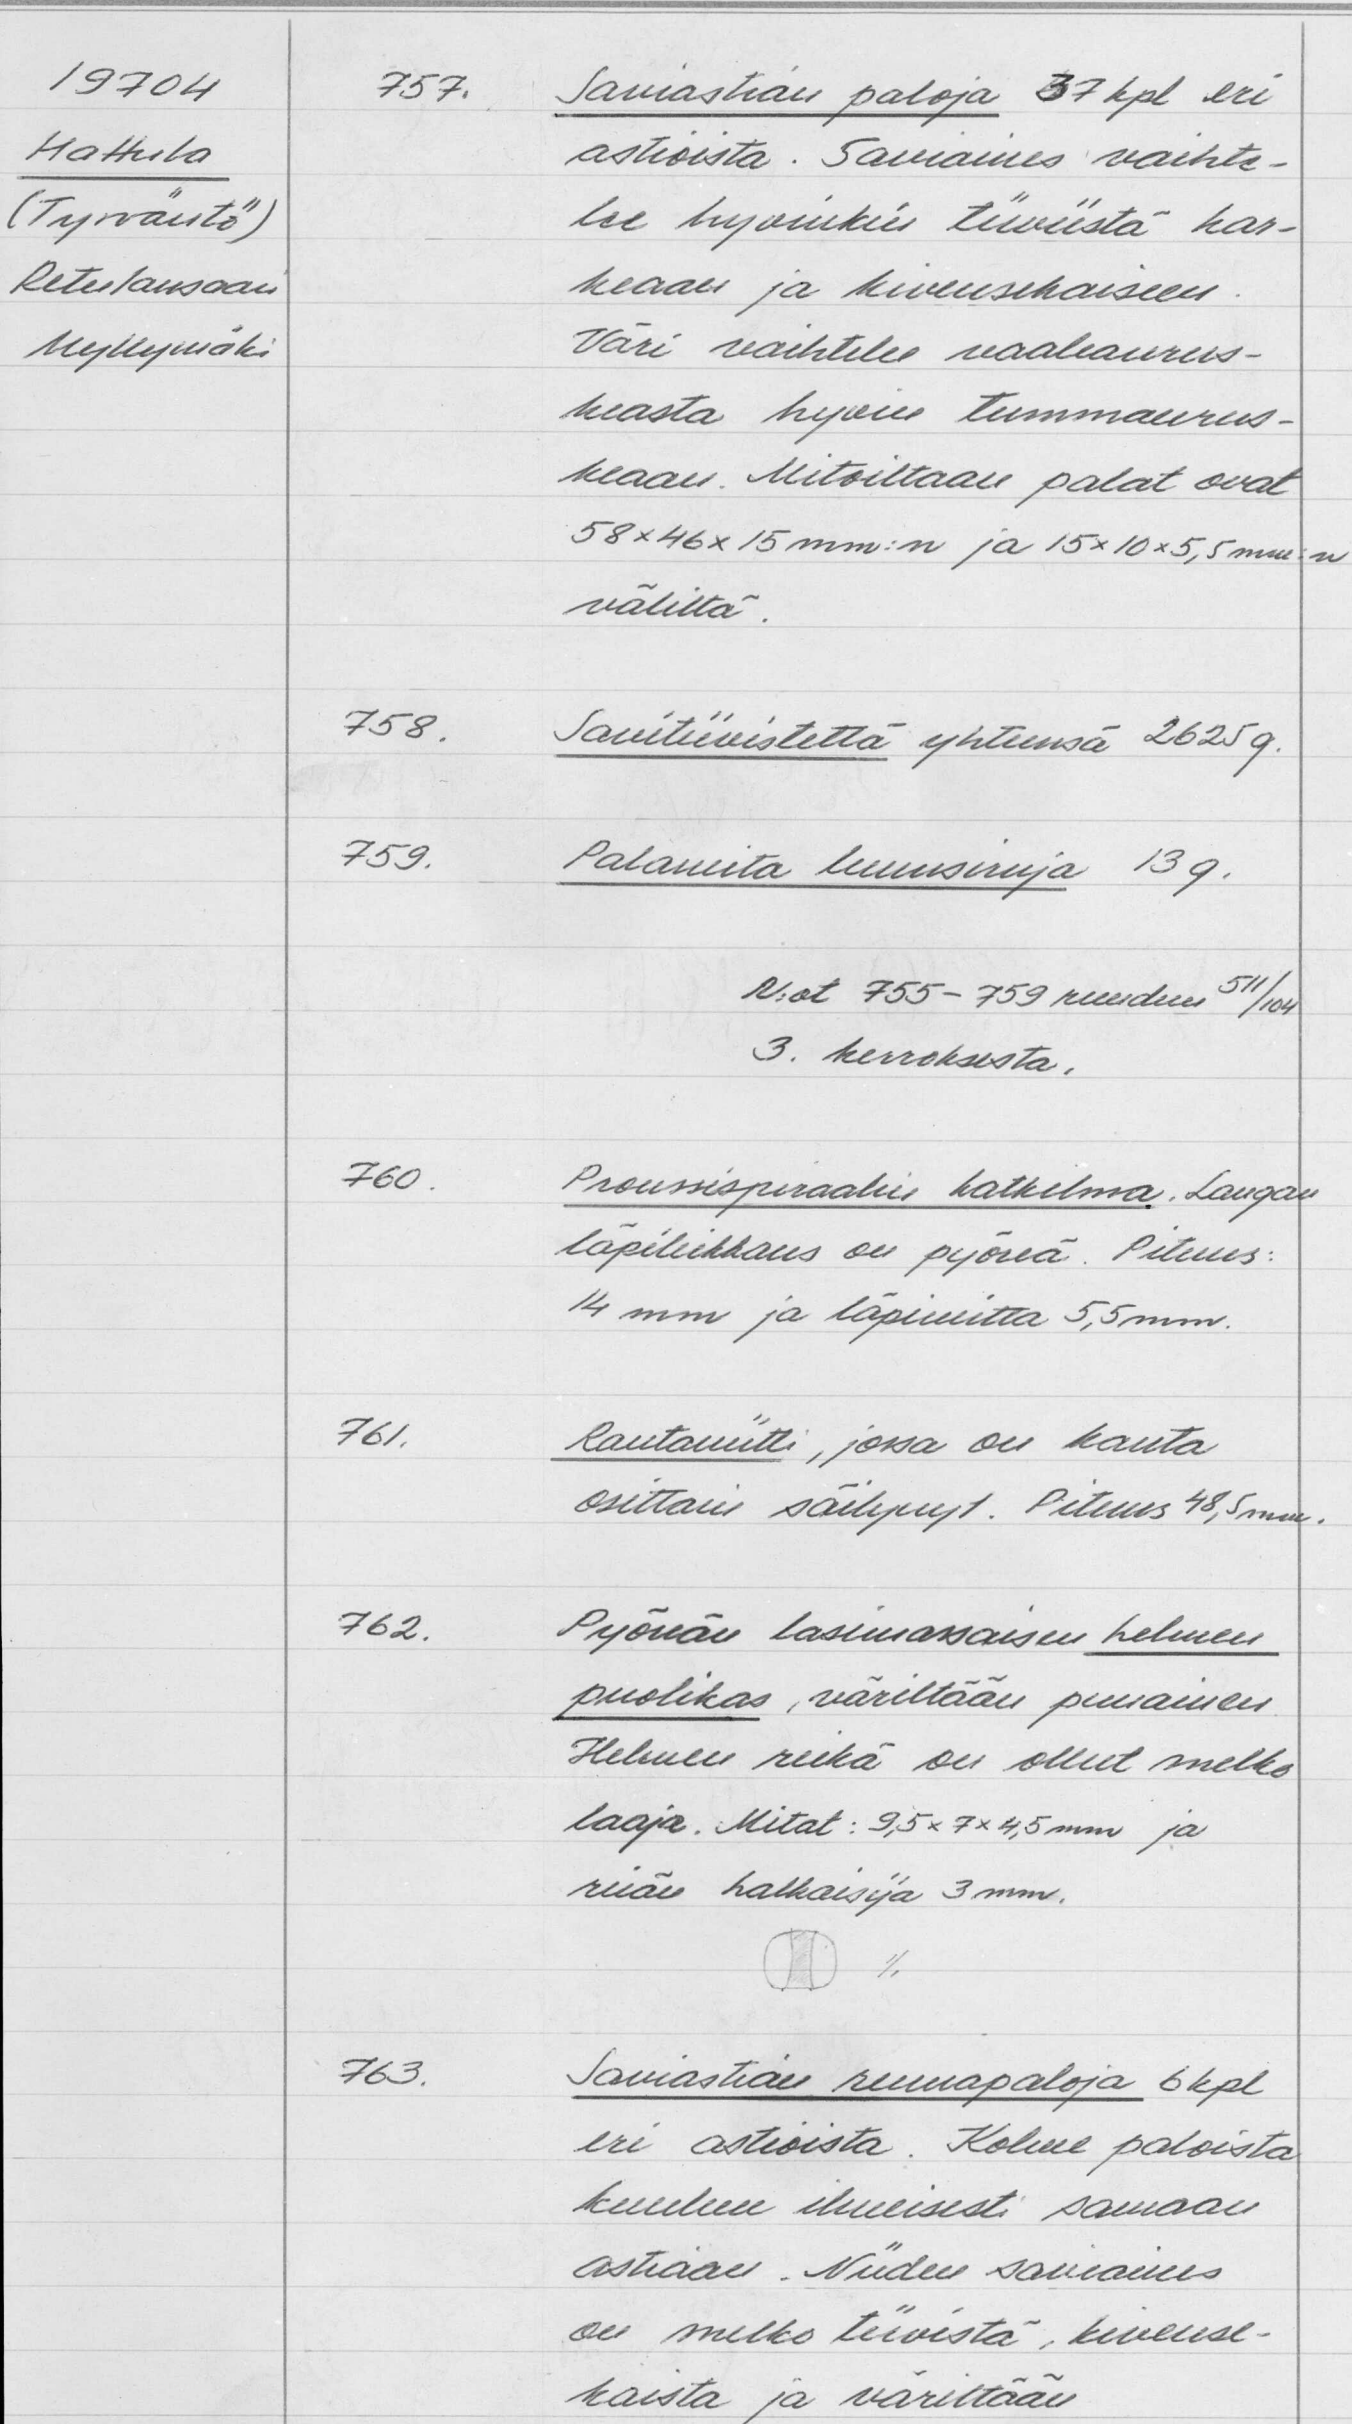 19704
Hattula
(Tyrväntö)
Retulansaari
Myllymäki
757. Saviastian paloja 37 kpl eri
astioista. Saviaines vaihte-
lee hyvinkin tiiviistä kar-
keaan ja kivensekaiseen.
Väri vaihtelee vaaleanrus-
keasta hyvin tummanrus-
keaan. Mitoiltaan palat ovat
58×46×15 mm:n ja 15×10×5,5 mm:n
väliltä.
758. Savitiivistettä yhteensä 2625 g.
759. Palaneita luunsiruja 13 g.
N:ot 755-759 ruudun 511/104
3. kerroksesta.
760. Pronssispiraalin katkelma. Langan
läpileikkaus on pyöreä. Pituus:
14 mm ja läpimitta 5,5 mm.
761. Rautaniitti, jossa on kanta
osittain säilynyt. Pituus 48,5 mm.
762. Pyöreän lasimassaisen helmen
puolikas, väriltään punainen
Helmen reikä on ollut melko
laaja. Mitat: 9,5×7×4,5 mm ja
reiän halkaisija 3 mm.
1/1
763. Saviastian reunapaloja 6 kpl
eri astioista. Kolme paloista
kuuluu ilmeisesti samaan
astiaan. Niiden saviaines
on melko tiivistä, kivense-
kaista ja väriltään